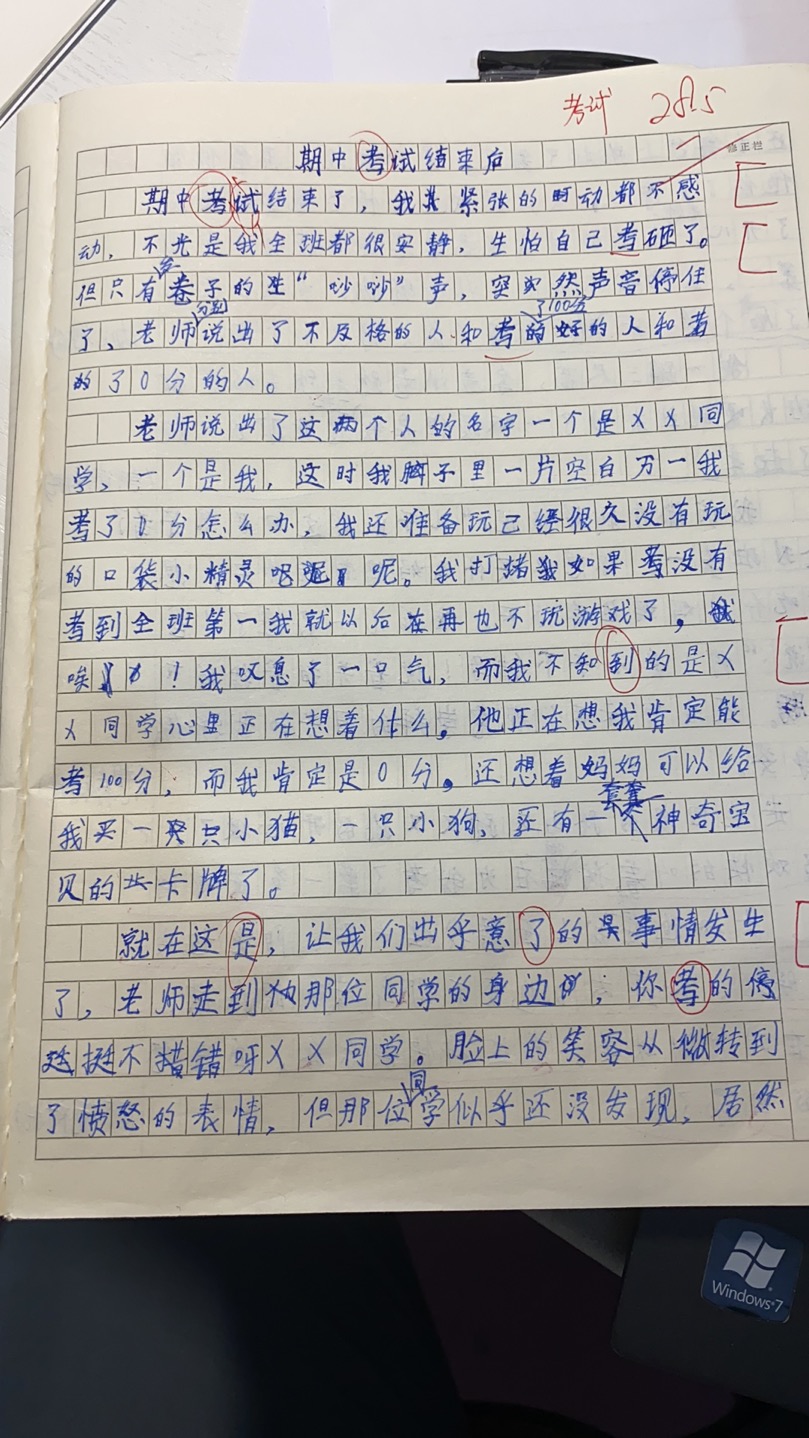 考试 28.5
期中考试结束后
修正栏
期中考试结束了，我紧张的时动都不感
动，不光是我全班都很安静，生怕自己考砸了。
但只有卷子的“唦唦”声，突然声音停住
了，老师分别说出了不及格的人和考了100分的人和考
的了0分的人。
老师说出了这两个人的名字一个是XX同
学，一个是我，这时我脑子里一片空白万一我
考了0分怎么办，我还准备玩已经很久没有玩
的口袋小精灵呢。我打赌如果考没有
考到全班第一我就以后再也不玩游戏了，
唉！我叹息了一口气，而我不知到的是X
X同学心里正在想着什么，他正在想我肯定能
考100分，而我肯定是0分。还想着妈妈可以给
我买一只小猫，一只小狗，还有一套神奇宝
贝的卡牌了。
就在这是，让我们出乎意了的事情发生
了，老师走到那位同学的身边，你考的
挺不错呀XX同学。脸上的笑容从微转到
了愤怒的表情，但那位同学似乎还没发现，居然
Windows 7